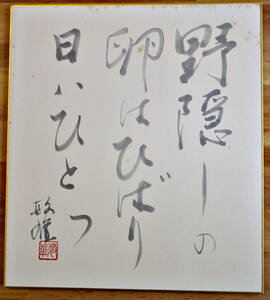 野隠しの
卵はひばり
日はひとつ
敏雄